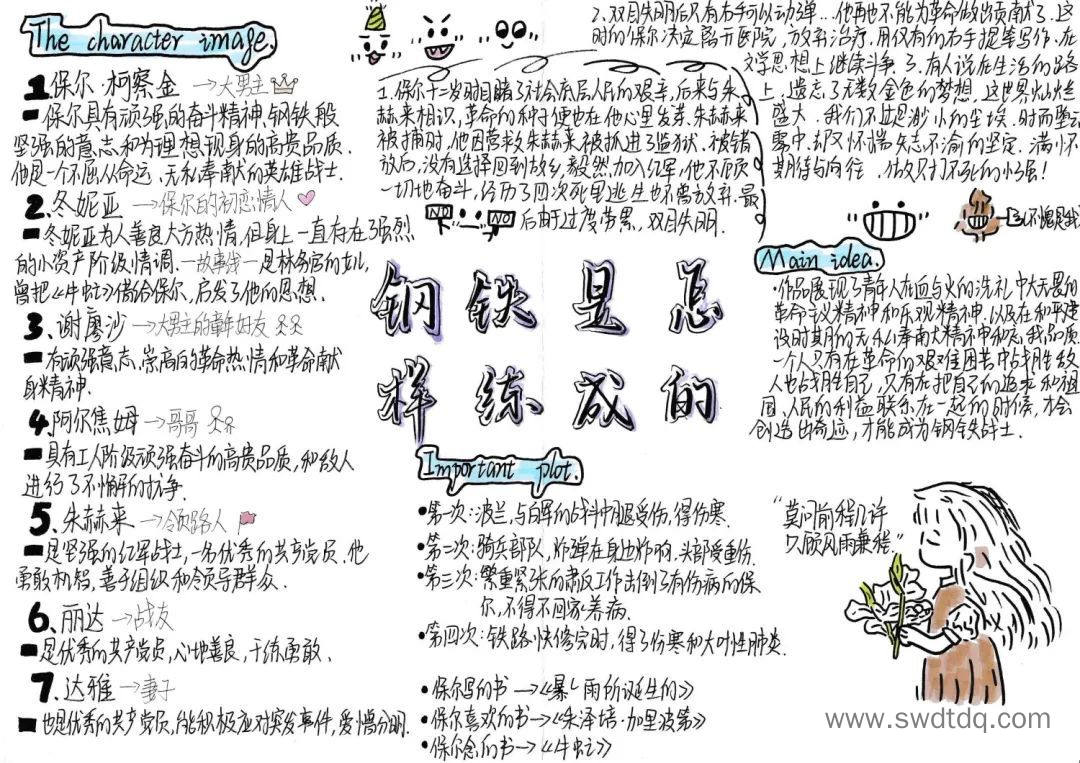 The character image.
1.保尔·柯察金→大男主
保尔具有顽强的奋斗精神,钢铁般
坚强的意志和为理想现身的高贵品质.
他是一个不屈从命运、无私奉献的英雄战士.
2.冬妮亚→保尔的初恋情人
冬妮亚为人善良大方热情,但身上一直存在了强烈
的小资产阶级情调.一故事线一是林务官的女儿,
曾把《牛虻》借给保尔,启发了他的思想.
3.谢廖沙→大男主的童年好友
有顽强意志.崇高的革命热情和革命献
身精神.
4.阿尔焦姆→哥哥
具有工人阶级顽强奋斗的高贵品质,和敌人
进行了不懈的抗争.
5.朱赫来→领路人
是坚强的红军战士,一名优秀的共产党员.他
勇敢机智,善于组织和领导群众.
6.丽达→战友
是优秀的共产党员,心地善良,干练勇敢.
7.达雅→妻子
也是优秀的共产党员,能积极应对突发事件,爱憎分明.
1.保尔十二岁时目睹了社会底层人民的艰辛,后来与朱
赫来相识,革命的种子便也在他心里发芽.朱赫来
被捕时,他因营救朱赫来被抓进了监狱.被错
放后,没有选择回到故乡,毅然加入红军,他不顾
一切地奋斗,经历了四次死里逃生也不曾放弃.最
NO NO 后由于过度劳累,双目失明.
2.双目失明后只有右手可以动弹...他再也不能为革命做出贡献了.这
时的保尔决定离开医院,放弃治疗.用仅有的右手提笔写作.在
文学思想上继续斗争.3.有人说在生活的路
上,遗忘了无数金色的梦想.这世界灿烂
盛大.我们不过是渺小的尘埃.时而坠入
雾中.却又怀揣矢志不渝的坚定.满怀
期待与向往.做只打不死的小强!
不愧是我
钢铁是怎
样练成的
Main idea.
·作品展现了青年人在血与火的洗礼中大无畏的
革命主义精神和乐观精神.以及在和平建
设时期的无私奉献精神和完美品质.
一个人只有在革命的艰难困苦中战胜敌
人也战胜自己,只有在把自己的追求和祖
国、人民的利益联系在一起的时候,才会
创造出奇迹,才能成为钢铁战士.
Important plot.
·第一次:波兰,与白军的战斗中腿受伤,得伤寒.
·第二次:骑兵部队,炸弹在身边炸响.头部受重伤.
·第三次:繁重紧张的肃反工作击倒了有伤病的保
尔,不得不回家养病.
·第四次:铁路快修完时,得了伤寒和大叶性肺炎.
·保尔写的书→《暴风雨所诞生的》
·保尔喜欢的书→《朱泽培·加里波第》
·保尔念的书→《牛虻》
“莫问前程几许
只顾风雨兼程.”
www.swdtdq.com